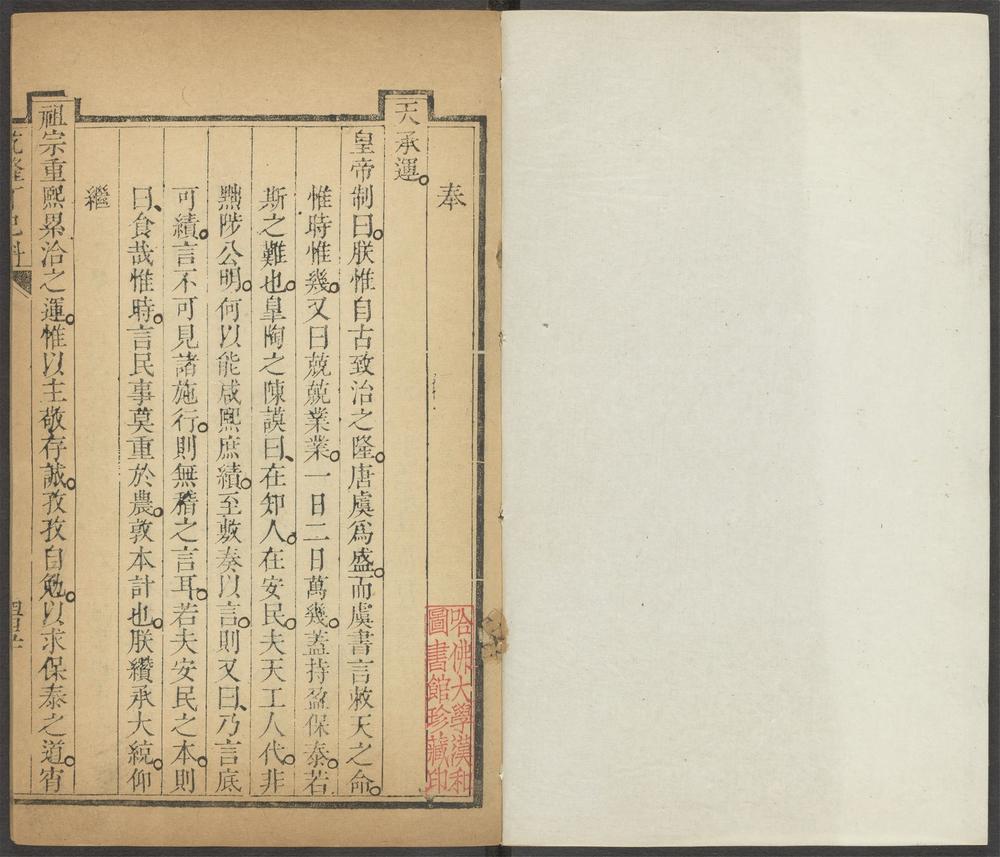 奉
天承運。
皇帝制曰。朕惟自古致治之隆。唐虞爲盛。而虞書言敕天之命。
惟時惟幾。又曰兢兢業業。一日二日萬幾。蓋持盈保泰。若
斯之難也。皐陶之陳謨曰、在知人。在安民。夫天工人代。非
黜陟公明。何以能咸熙庶績。至敷奏以言。則又曰、乃言底
可績。言不可見諸施行。則無稽之言耳。若夫安民之本。則
曰、食哉惟時。言民事莫重於農。敦本計也。朕纘承大統。仰
繼
祖宗重熙累洽之運。惟以主敬存誠。孜孜自勉。以求保泰之道。宵
乾隆丁巳科
哈佛大學漢和
圖書館珍藏印